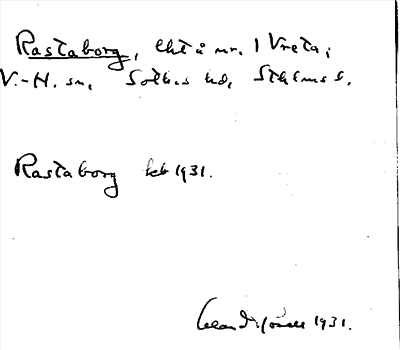 Rastaborg, lht å nr. 1 Vreta,
V.-H. sn, Soth.s hd, Sthlms l.
Rastaborg feb 1931.
1931.